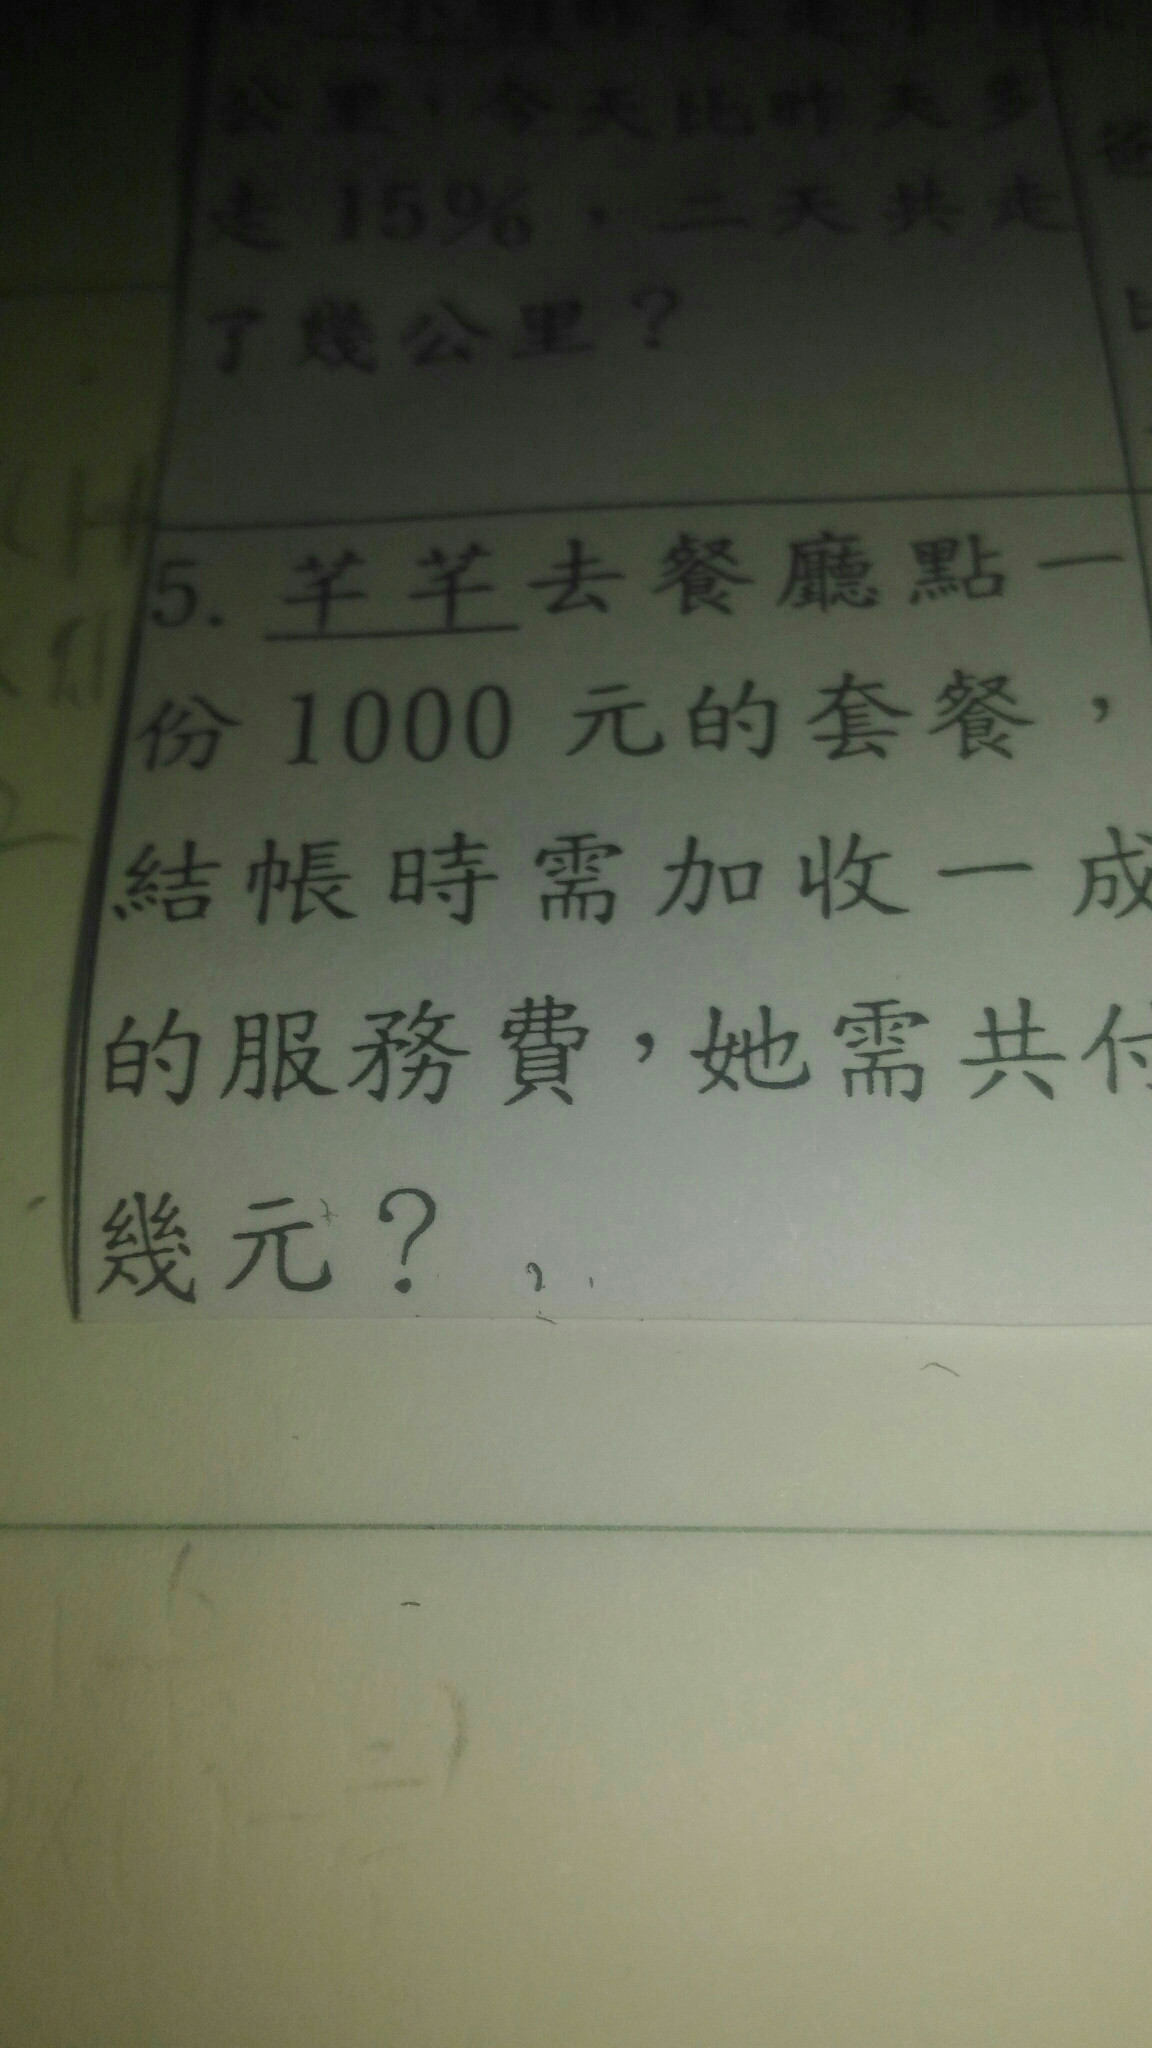 公里，今天比昨天多
走 15%，二天共走
了幾公里？
5. 芊芊去餐廳點一
份 1000 元的套餐，
結帳時需加收一成
的服務費，她需共付
幾元？